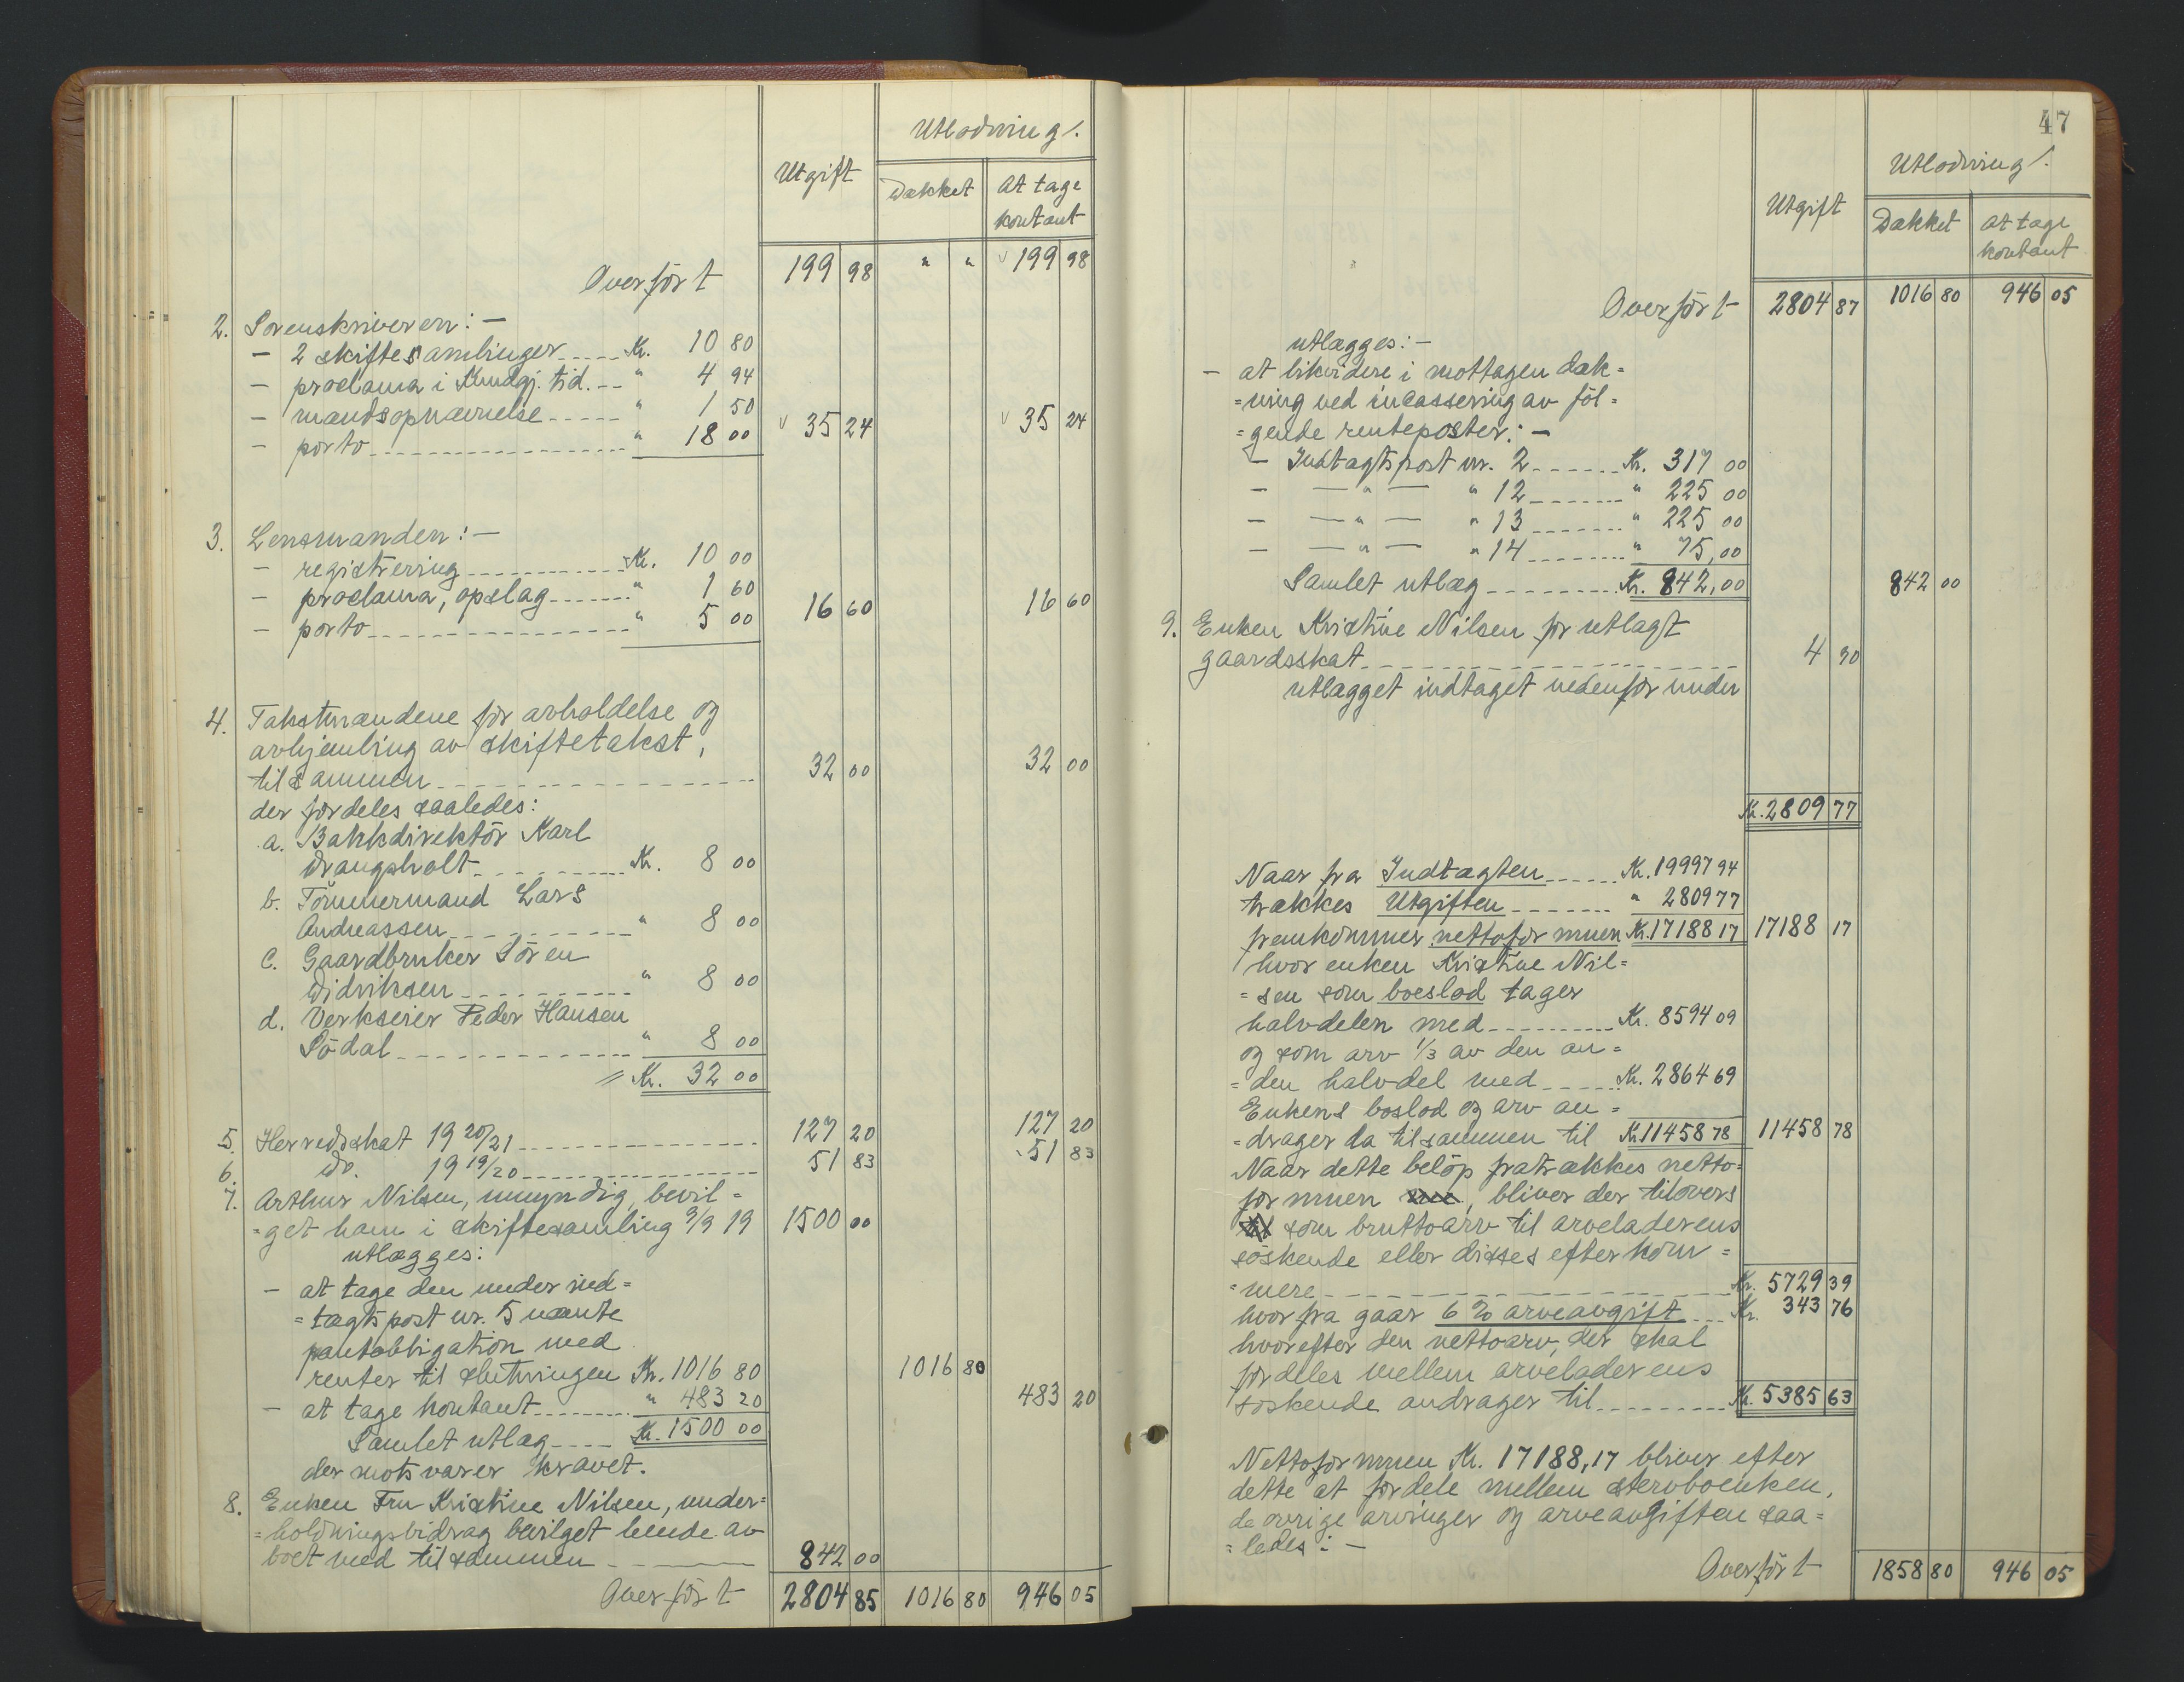 Utlodning /.
Utgift Dækket At tage
kontant
Overført 199 98 " " 199 98
2. Sorenskriveren: —
— 2 skiftesamlinger Kr. 10 80
— proclama i Kundgj. tid. " 4 94
— mandsopnævnelse " 1 50
— porto " 18 00 35 24 35 24
3. Lensmanden: —
— registrering Kr. 10 00
— proclama, opslag " 1 60
— porto " 5 00 16 60 16 60
4. Takstmændene for avholdelse og
avhjemling av skiftetakst,
tilsammen 32 00 32 00
der fordeles saaledes:
a. Bankdirektør Karl
Drangsholt Kr. 8 00
b. Tømmermand Lars
Andreassen " 8 00
c. Gaardbruker Søren
Didriksen " 8 00
d. Verkseier Peder Hansen
Sødal " 8 00
Kr. 32 00
5. Herredsskat 19 20/21 127 20 127 20
6. Do. 19 19/20 51 83 51 83
7. Arthur Nilsen, umyndig, bevil=
=get ham i skiftesamling 9/9 19 1500 00
utlægges:
— at tage den under ind=
=tægtspost nr. 5 nævnte
pantobligation med
renter til slutningen Kr. 1016 80 1016 80
— at tage kontant " 483 20 483 20
Samlet utlæg Kr. 1500 00
der motsvarer kravet.
8. Enken Fru Kristine Nilsen, under=
=holdningsbidrag bevilget hende av
boet med tilsammen 842 00
Overført 2804 85 1016 80 946 05
47
Utlodning /.
Utgift Dækket At tage
kontant
Overført 2804 87 1016 80 946 05
utlægges: —
— at likvidere i mottagen dæk=
=ning ved incassering av føl=
=gende renteposter: —
— Indtægtspost nr. 2 Kr. 317 00
— — " — " 12 " 225 00
— — " — " 13 " 225 00
— — " — " 14 " 75,00
Samlet utlæg Kr. 842,00 842 00
9. Enken Kristine Nilsen for utlagt
gaardsskat 4 90
utlægget indtaget nedenfor under
Kr. 2809 77
Naar fra Indtægten Kr. 19997 94
trækkes Utgiften " 2809 77
fremkommer nettoformuen Kr. 17188 17 17188 17
hvor enken Kristine Nil=
=sen som boeslod tager
halvdelen med Kr. 8594 09
og som arv 1/3 av den an=
=den halvdel med Kr. 2864 69
Enkens boslod og arv an=
=drager da tilsammen til Kr. 11458 78 11458 78
Naar dette beløp fratrækkes netto=
formuen, bliver der tilovers
som bruttoarv til arveladerens
søskende eller disses efterkom=
=mere Kr. 5729 39
hvorfra gaar 6 % arveavgift Kr. 343 76
hvorefter den nettoarv, der skal
fordeles mellem arveladerens
søskende andrager til Kr. 5385 63
Nettoformuen Kr. 17188,17 bliver efter
dette at fordele mellem stervboenken,
de øvrige arvinger og arveavgiften saa=
=ledes: —
Overført 1858 80 946 05